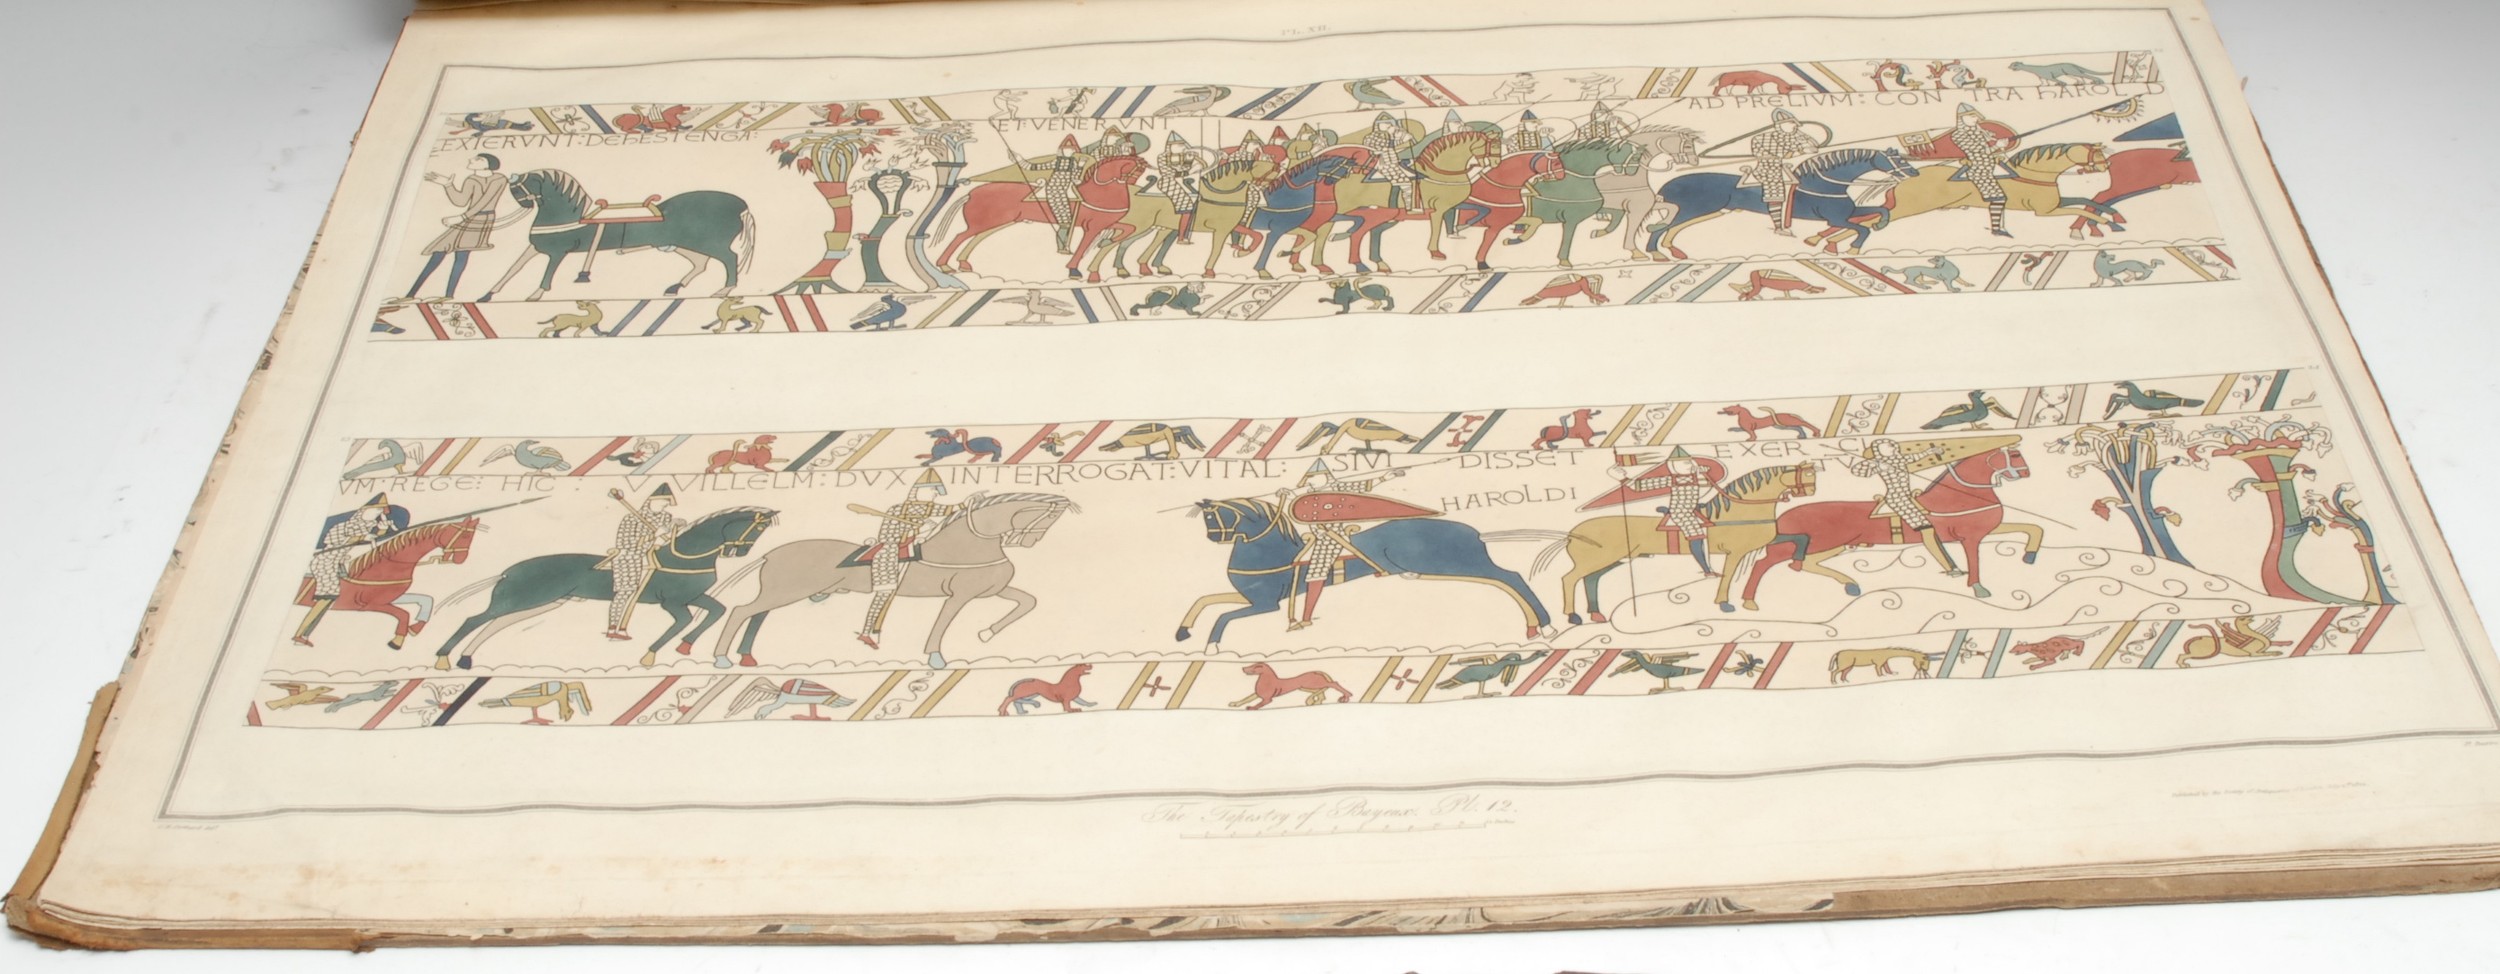 PL. XII.
EXIERVNT: DE hESTENGA:
ET: VENERVNT
AD PRELIVM: CONTRA hAROLD
VM· REGE: HIC : VVILLELM: DVX INTERROGAT: VITAL: SIVI DISSET EXERCI
TV
HAROLDI
The Tapestry of Bayeux. Pl. 12.